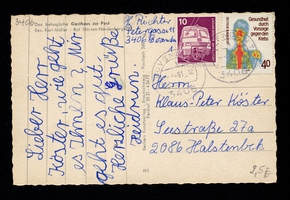 3406
Das vorzügliche Gasthaus zur Post
Bes. Karl Müller
H. Richter
Petergasse 11
3406 Bovenden
10
Gesundheit durch Vorsorge gegen den Krebs
40
Lieber Herr
Köster, wie geht
es Ihnen? Mir
geht es gut.
Herzliche Grüße
Heidrun
Herrn
Klaus-Peter Köster
Seestraße 27a
2086 Halstenbek
2,5